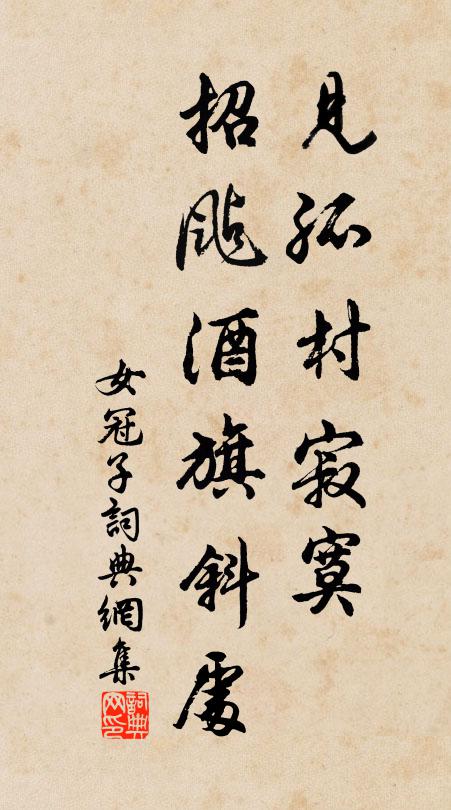 見孤村寂寞
招颭酒旗斜處
女冠子詞典網集
詞典网印